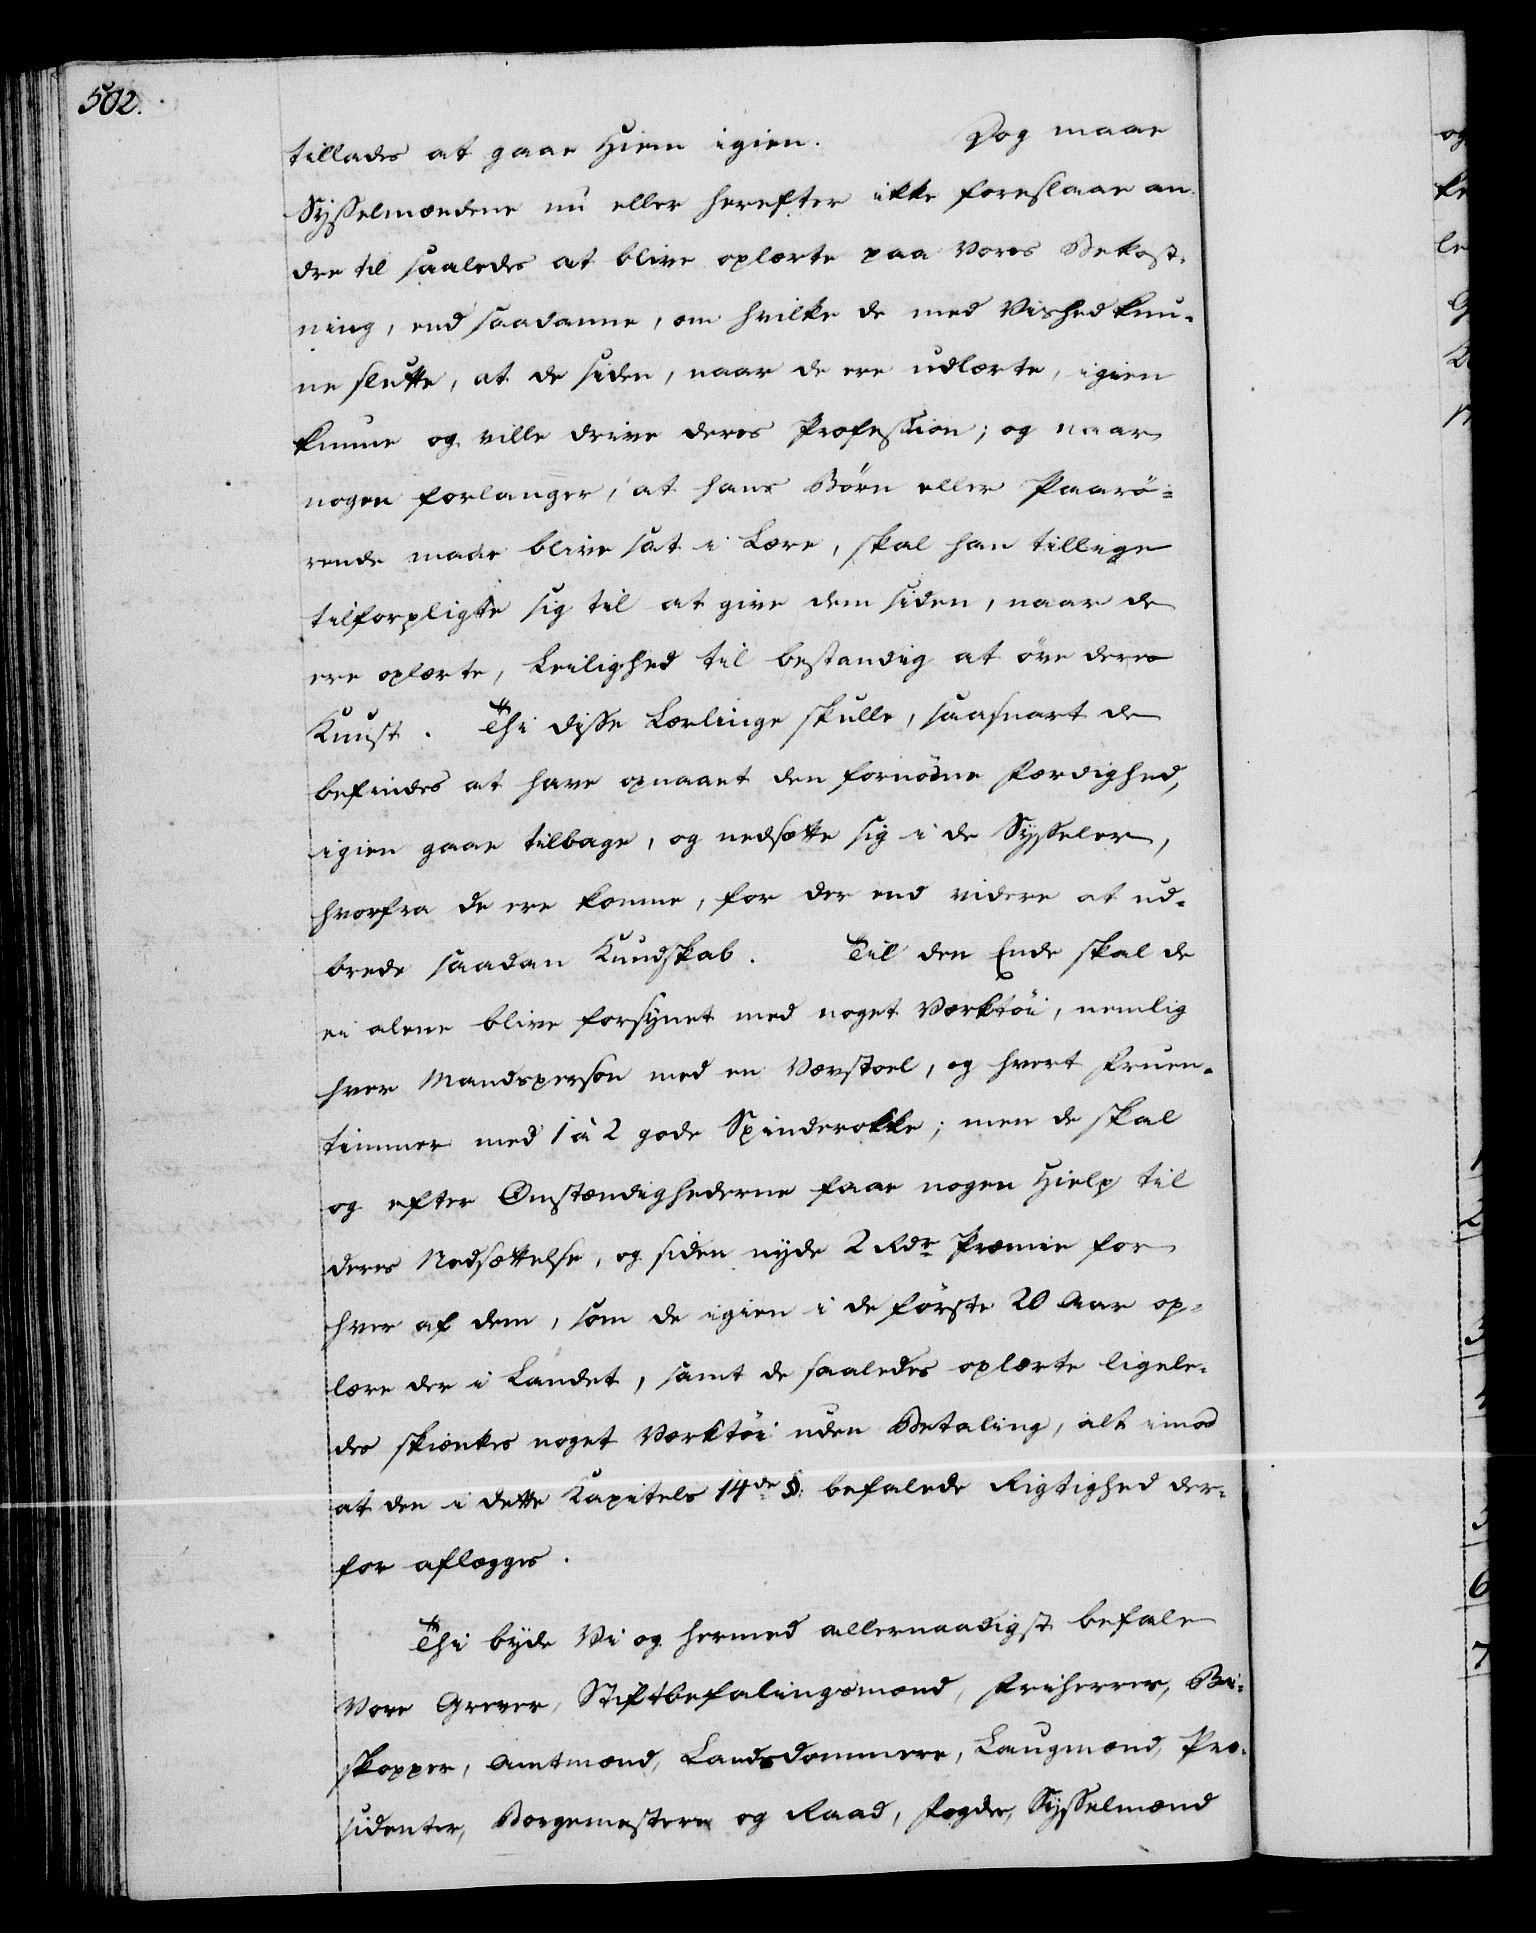 502.
tillades at gaae Hiem igien. Dog maae
Sysselmændene nu eller herefter ikke foreslaae an-
dre til saaledes at blive oplærte paa Vores Bekost-
ning, end saadanne, om hvilke de med Vished kun-
ne slutte, at de siden, naar de ere udlærte, igien
kunne og ville drive deres Profession; og naar
nogen forlanger, at hans Börn eller Paarö-
rende maae blive sat i Lære, skal han tillige
tilforpligte sig til at give dem siden, naar de
ere oplærte, Leilighed til bestandig at öve deres
Kunst. Thi disse Lærlinge skulle, saasnart de
befindes at have opnaaet den fornödne Færdighed,
igien gaae tilbage, og nedsætte sig i de Sysseler,
hvorfra de ere komne, for der end videre at ud-
brede saadan Kundskab. Til den Ende skal de
ei alene blive forsynet med noget Værktöi, nemlig
hver Mandsperson med en Vævstoel, og hvert Fruen-
timmer med 1 à 2 gode Spinderokke; men de skal
og efter Omstændighederne faae nogen Hielp til
deres Nedsættelse, og siden nyde 2 Rdr Præmie for
hver af dem, som de igien i de förste 20 Aar op-
lære der i Landet, samt de saaledes oplærte ligele-
des skiænkes noget Værktöi uden Betaling, alt imod
at den i dette Kapitels 14de §. befalede Rigtighed der-
for aflægges.
Thi byde Vi og hermed allernaadigst befale
Vore Grever, Stiftbefalingsmænd, Friherrer, Bi-
skopper, Amtmænd, Landsdommere, Laugmænd, Præ-
sidenter, Borgemestere og Raad, Fogder, Sysselmænd